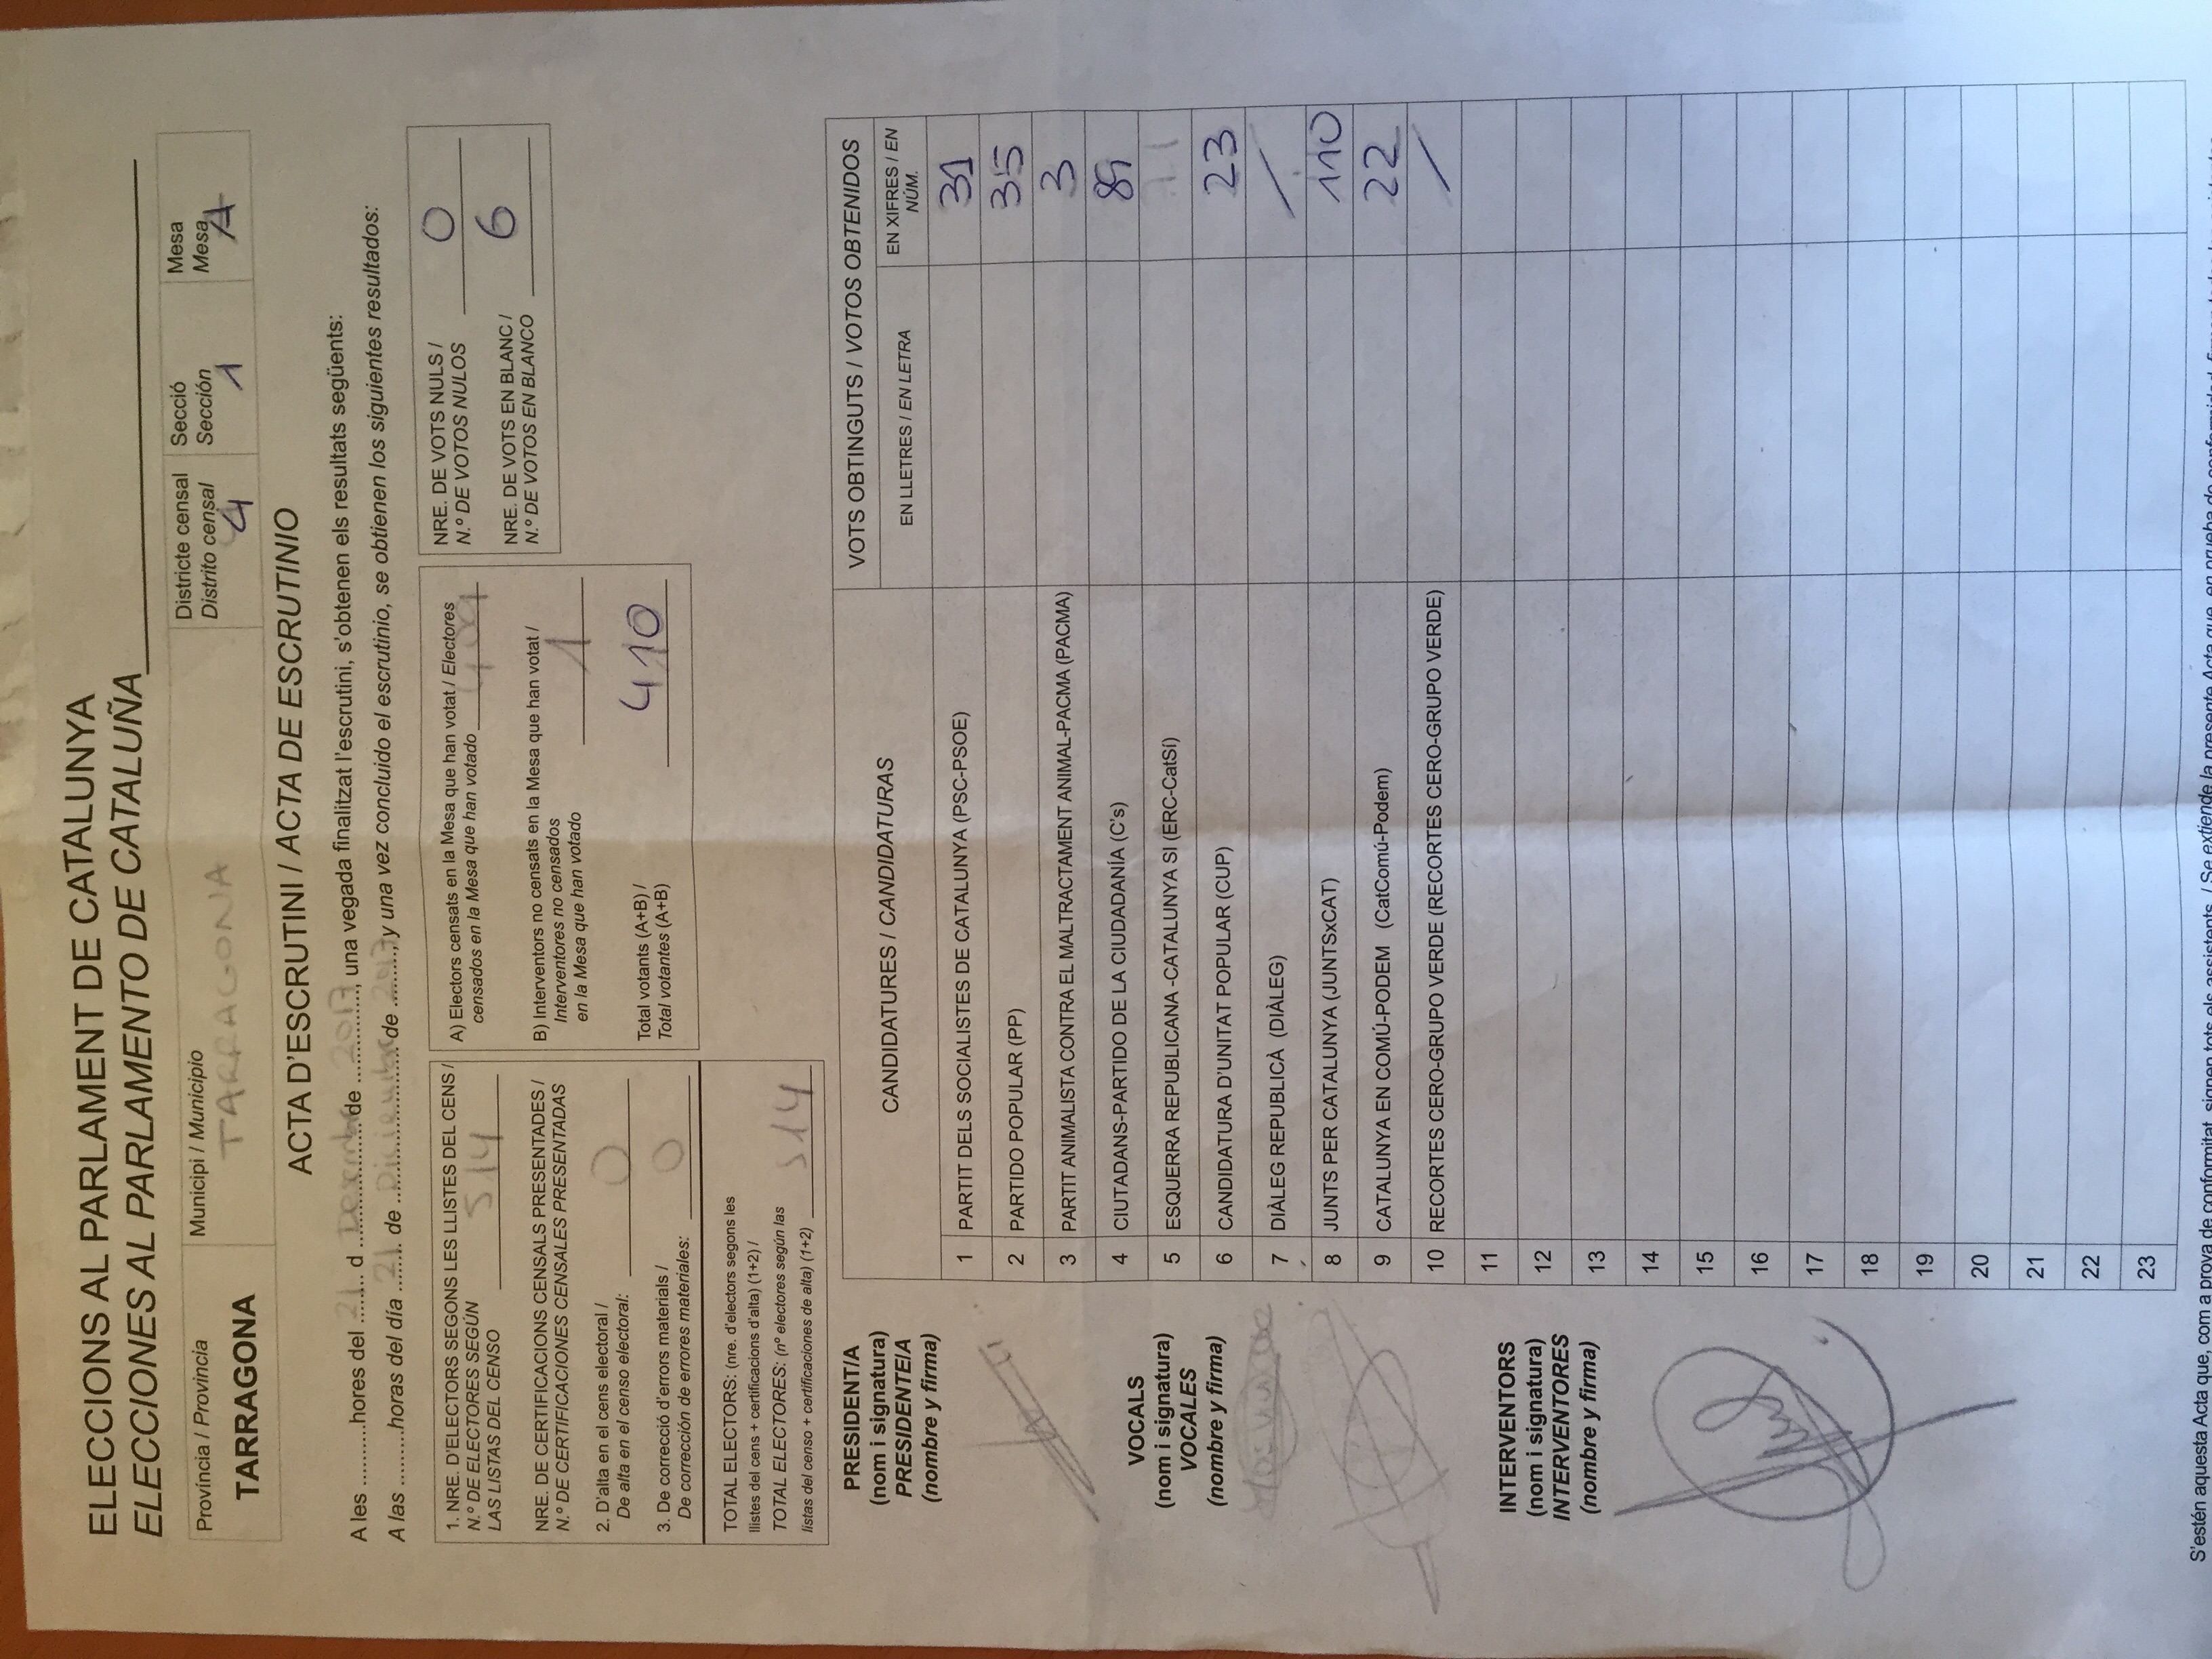 ELECCIONS AL PARLAMENT DE CATALUNYA
ELECCIONES AL PARLAMENTO DE CATALUÑA
Província / Provincia
TARRAGONA
Municipi / Municipio
TARRAGONA
Districte censal
Distrito censal
4
Secció
Sección
1
Mesa
Mesa
A
ACTA D'ESCRUTINI / ACTA DE ESCRUTINIO
A les .........hores del 21 d Desembre de 2017, una vegada finalitzat l'escrutini, s'obtenen els resultats següents:
A las .........horas del día 21 de Diciembre de 2017, y una vez concluido el escrutinio, se obtienen los siguientes resultados:
1. NRE. D'ELECTORS SEGONS LES LLISTES DEL CENS /
N.º DE ELECTORES SEGÚN
LAS LISTAS DEL CENSO 514
NRE. DE CERTIFICACIONS CENSALS PRESENTADES /
N.º DE CERTIFICACIONES CENSALES PRESENTADAS
2. D'alta en el cens electoral /
De alta en el censo electoral: 0
3. De correcció d'errors materials /
De corrección de errores materiales: 0
TOTAL ELECTORS: (nre. d'electors segons les
llistes del cens + certificacions d'alta) (1+2) /
TOTAL ELECTORES: (nº electores según las
listas del censo + certificaciones de alta) (1+2) 514
A) Electors censats en la Mesa que han votat / Electores
censados en la Mesa que han votado 409
B) Interventors no censats en la Mesa que han votat /
Interventores no censados
en la Mesa que han votado 1
Total votants (A+B) /
Total votantes (A+B) 410
NRE. DE VOTS NULS /
N.º DE VOTOS NULOS 0
NRE. DE VOTS EN BLANC /
N.º DE VOTOS EN BLANCO 6
PRESIDENT/A
(nom i signatura)
PRESIDENTE/A
(nombre y firma)
VOCALS
(nom i signatura)
VOCALES
(nombre y firma)
INTERVENTORS
(nom i signatura)
INTERVENTORES
(nombre y firma)
CANDIDATURES / CANDIDATURAS
VOTS OBTINGUTS / VOTOS OBTENIDOS
EN LLETRES / EN LETRA
EN XIFRES / EN
NÚM.
1 PARTIT DELS SOCIALISTES DE CATALUNYA (PSC-PSOE) 31
2 PARTIDO POPULAR (PP) 35
3 PARTIT ANIMALISTA CONTRA EL MALTRACTAMENT ANIMAL-PACMA (PACMA) 3
4 CIUTADANS-PARTIDO DE LA CIUDADANÍA (C's) 89
5 ESQUERRA REPUBLICANA -CATALUNYA SI (ERC-CatSí)
6 CANDIDATURA D'UNITAT POPULAR (CUP) 23
7 DIÀLEG REPUBLICÀ (DIÀLEG) /
8 JUNTS PER CATALUNYA (JUNTSxCAT) 110
9 CATALUNYA EN COMÚ-PODEM (CatComú-Podem) 22
10 RECORTES CERO-GRUPO VERDE (RECORTES CERO-GRUPO VERDE) /
11
12
13
14
15
16
17
18
19
20
21
22
23
S'estén aquesta Acta que, com a prova de conformitat, signen tots els assistents. / Se extiende la presente Acta que, en prueba de conformidad, firman todos los asistentes.